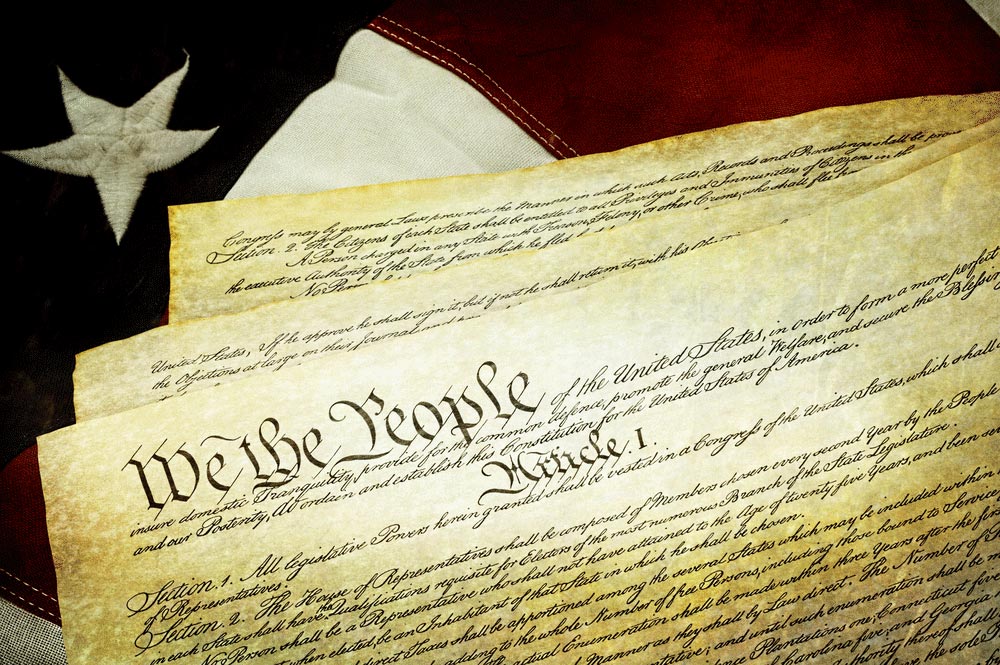 Congress may by general Laws prescribe the Manner in which such Acts, Records and Proceedings shall be
Section. 2. The Citizens of each State shall be entitled to all Privileges and Immunities of Citizens in the
A Person charged in any State with Treason, Felony, or other Crime, who shall flee
the executive Authority of the State from which he fled
No Per
United States, If he approve he shall sign it, but if not he shall return it, with his
the Objections at large on their Journal
We the People of the United States, in order to form a more perfect
insure domestic Tranquility, provide for the common defence, promote the general Welfare, and secure the Blessin
and our Posterity, do ordain and establish this Constitution for the United States of America.
Article. I.
Section. 1. All legislative Powers herein granted shall be vested in a Congress of the United States, which shall
of Representatives.
Section. 2. The House of Representatives shall be composed of Members chosen every second Year by the People
in each State shall have the Qualifications requisite for Electors of the most numerous Branch of the State Legislature.
No Person shall be a Representative who shall not have attained to the Age of twenty five Years, and been
when elected, be an Inhabitant of that State in which he shall be chosen.
direct Taxes shall be apportioned among the several States which may be included within
adding to the whole Number of free Persons, including those bound to Service
actual Enumeration shall be made within three Years after the first
Manner as they shall by Law direct. The Number of
and until such enumeration shall be
Plantations one, Connecticut five
Carolina five, and Georgia
authority thereof shall
the sole